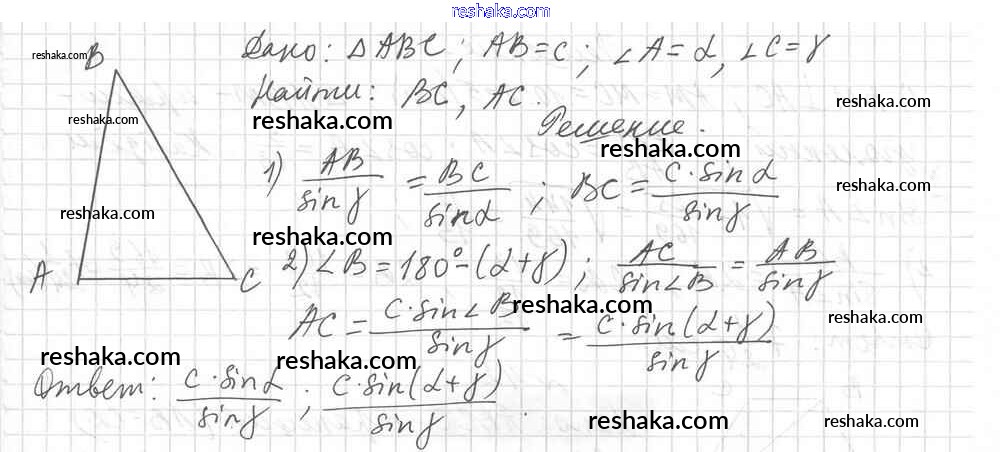 reshaka.com
reshaka.com
B
Дано: △ABC; AB=c; ∠A=α, ∠C=γ
Найти: BC, AC.
reshaka.com
reshaka.com
reshaka.com
Решение.
reshaka.com
1) AB/sinγ = BC/sinα; BC = c·sinα/sinγ
reshaka.com
reshaka.com
reshaka.com
2) ∠B=180°-(α+γ); AC/sin∠B = AB/sinγ
A
C
reshaka.com
AC = c·sin∠B/sinγ = c·sin(α+γ)/sinγ
reshaka.com
reshaka.com
reshaka.com
Ответ: c·sinα/sinγ; c·sin(α+γ)/sinγ.
reshaka.com
reshaka.com